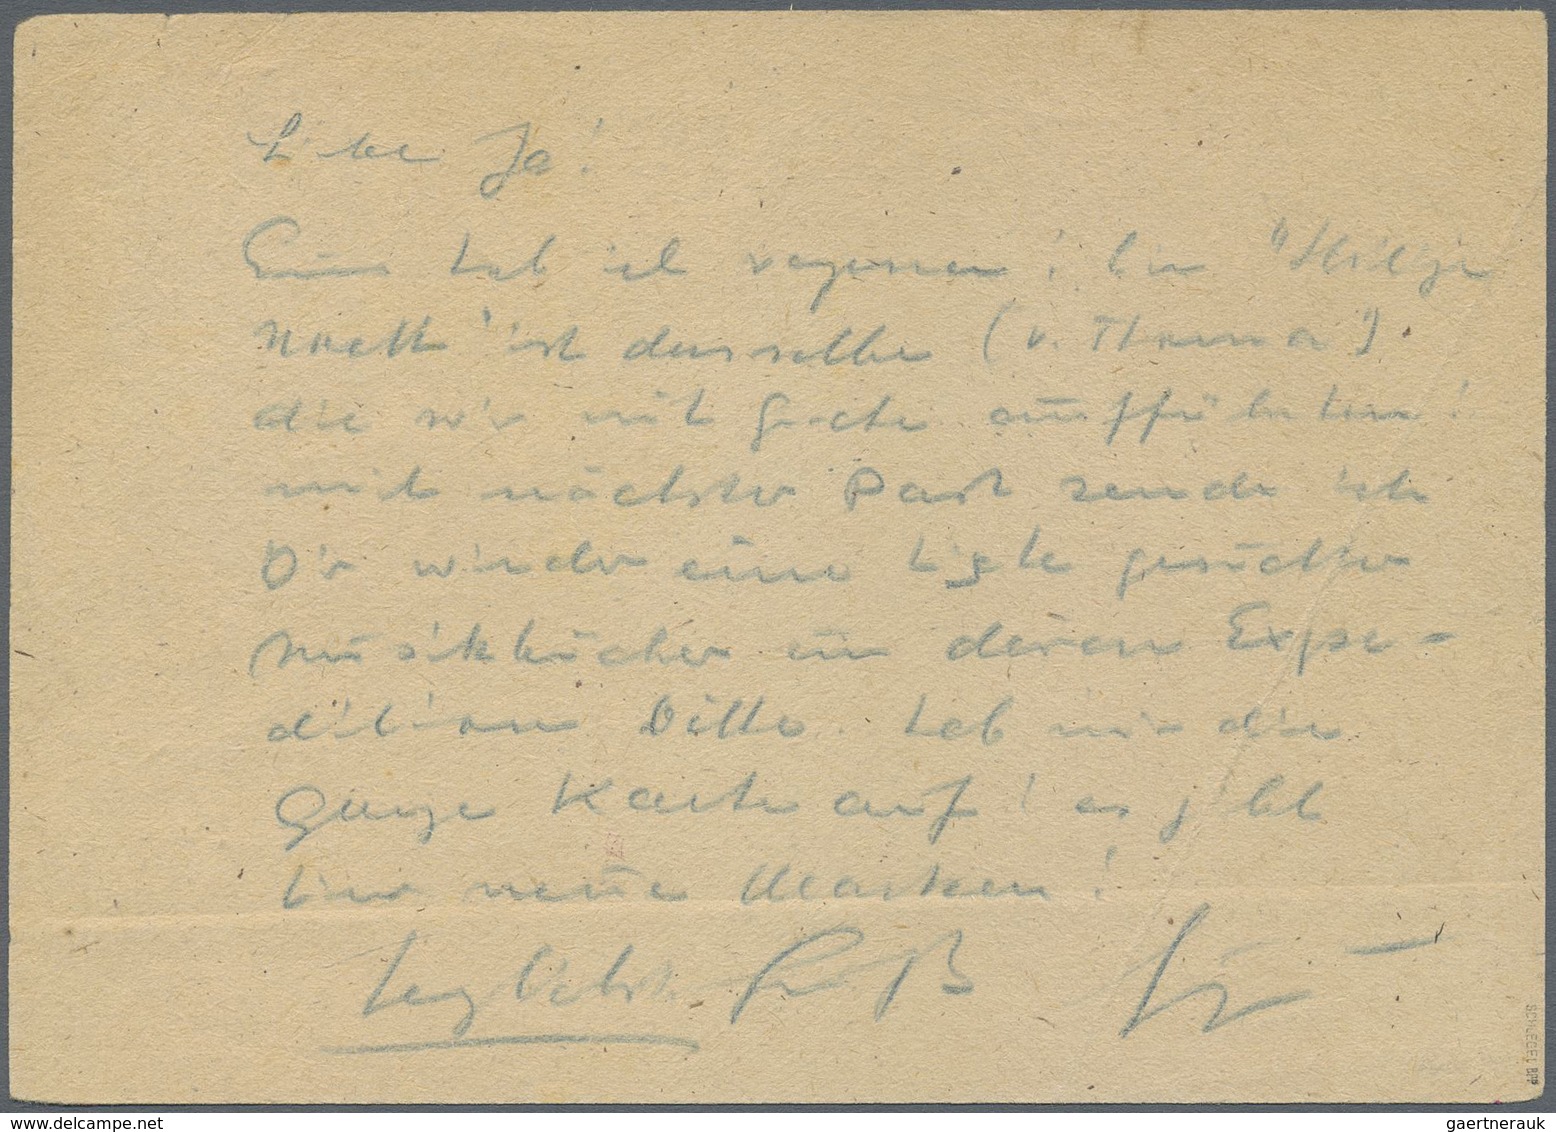 Liebe Ja!
Eins hab ich vergessen! die "Heilige
Nacht" ist dasselbe (v. Thoma)
die wir mit aufführten!
mit nächster Post sende ich
Dir wieder eine Liste gesuchter
Musikbücher um deren Expe-
dition Bitte. Heb mir die
ganze Karte auf! es gibt
hier neue Marken!
herzlichst Gruß
SCHLEGEL BPP
gaertnerauk